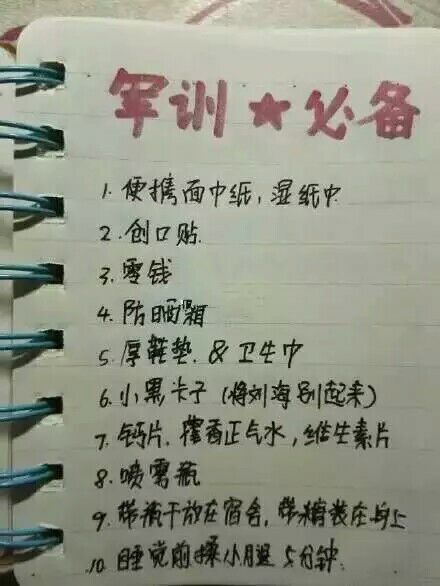 军训★必备
1. 便携面巾纸,湿纸巾
2. 创口贴
3. 零钱
4. 防晒霜
5. 厚鞋垫 & 卫生巾
6. 小黑卡子(将刘海别起来)
7. 钙片,藿香正气水,维生素片
8. 喷雾瓶
9. 带饼干放在宿舍,带糖装在身上
10. 睡觉前揉小腿5分钟